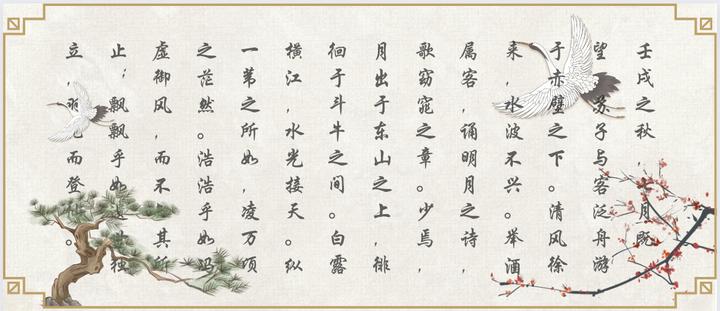 壬戌之秋，七月既
望，苏子与客泛舟游
于赤壁之下。清风徐
来，水波不兴。举酒
属客，诵明月之诗，
歌窈窕之章。少焉，
月出于东山之上，徘
徊于斗牛之间。白露
横江，水光接天。纵
一苇之所如，凌万顷
之茫然。浩浩乎如冯
虚御风，而不其所
止；飘飘乎如独
立，羽而登。